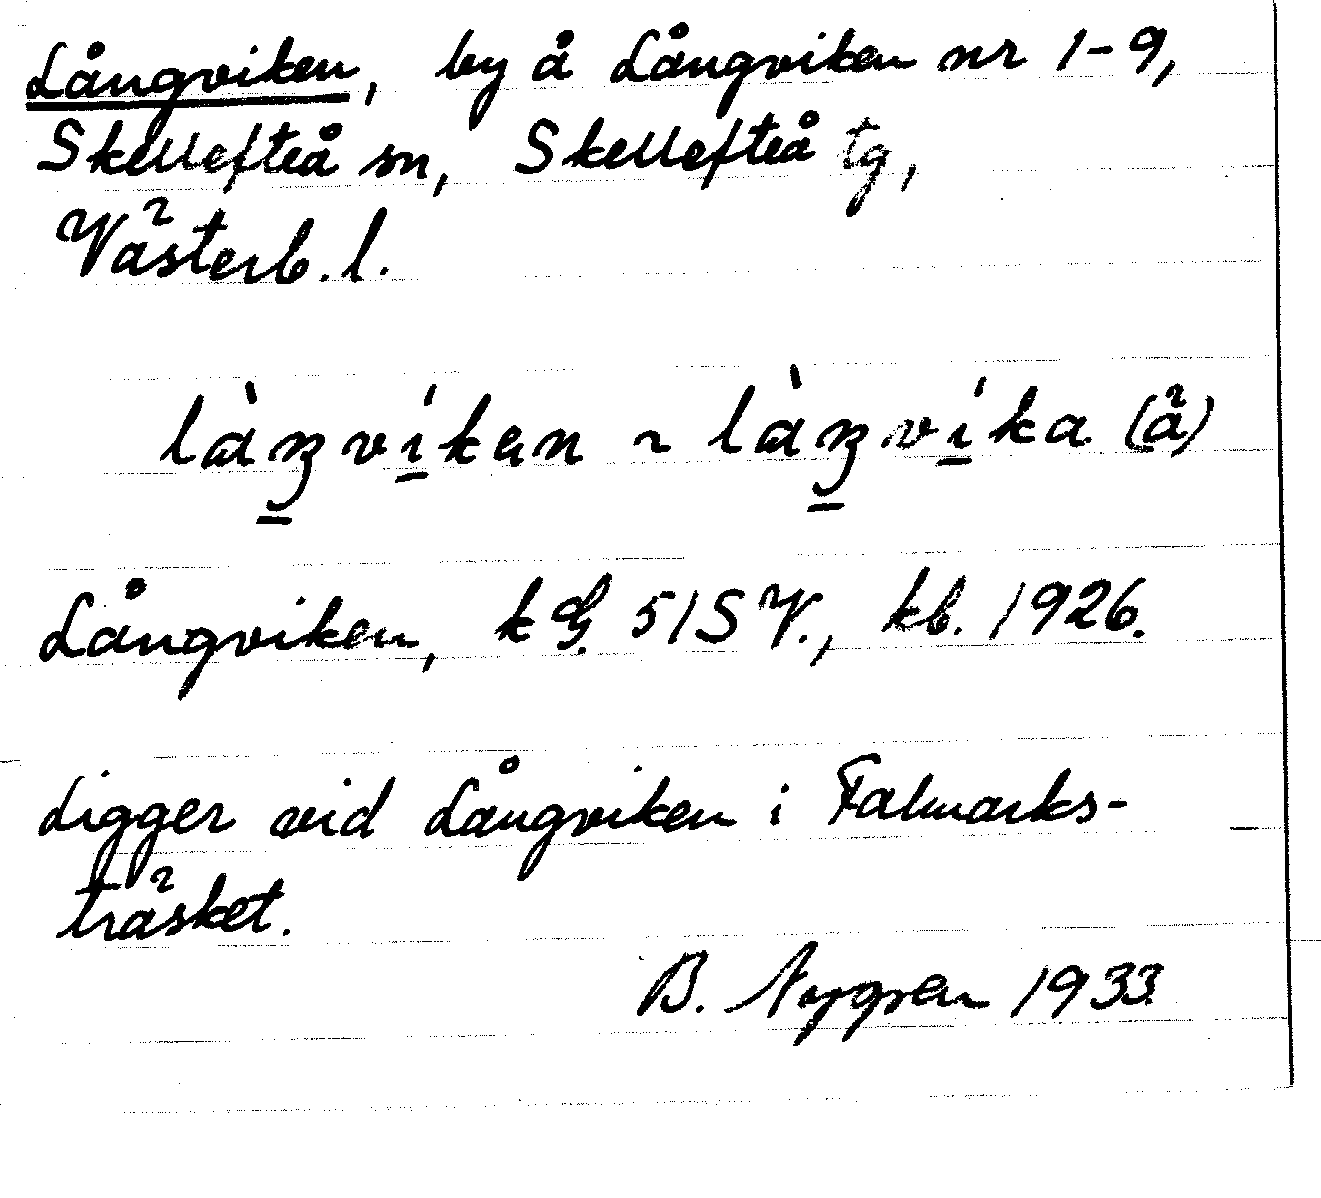 Långviken, by å Långviken nr 1-9,
Skellefteå sn, Skellefteå tg,
Västerb. l.
làŋvíkən ~ làŋvíka (å)
Långviken, kG. 51SV., kb. 1926.
Ligger vid Långviken i Falmarks-
träsket.
B. Nygren 1933